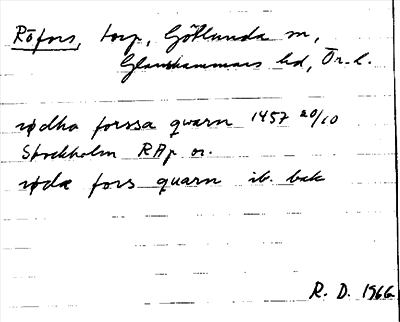 Röfors, torp, Götlunda sn,
Glanshammars hd, Ör. l.
rødha forssa qwarn 1457 20/10
Stockholm RAp or.
røda fors quarn ib. bak
R. D. 1966